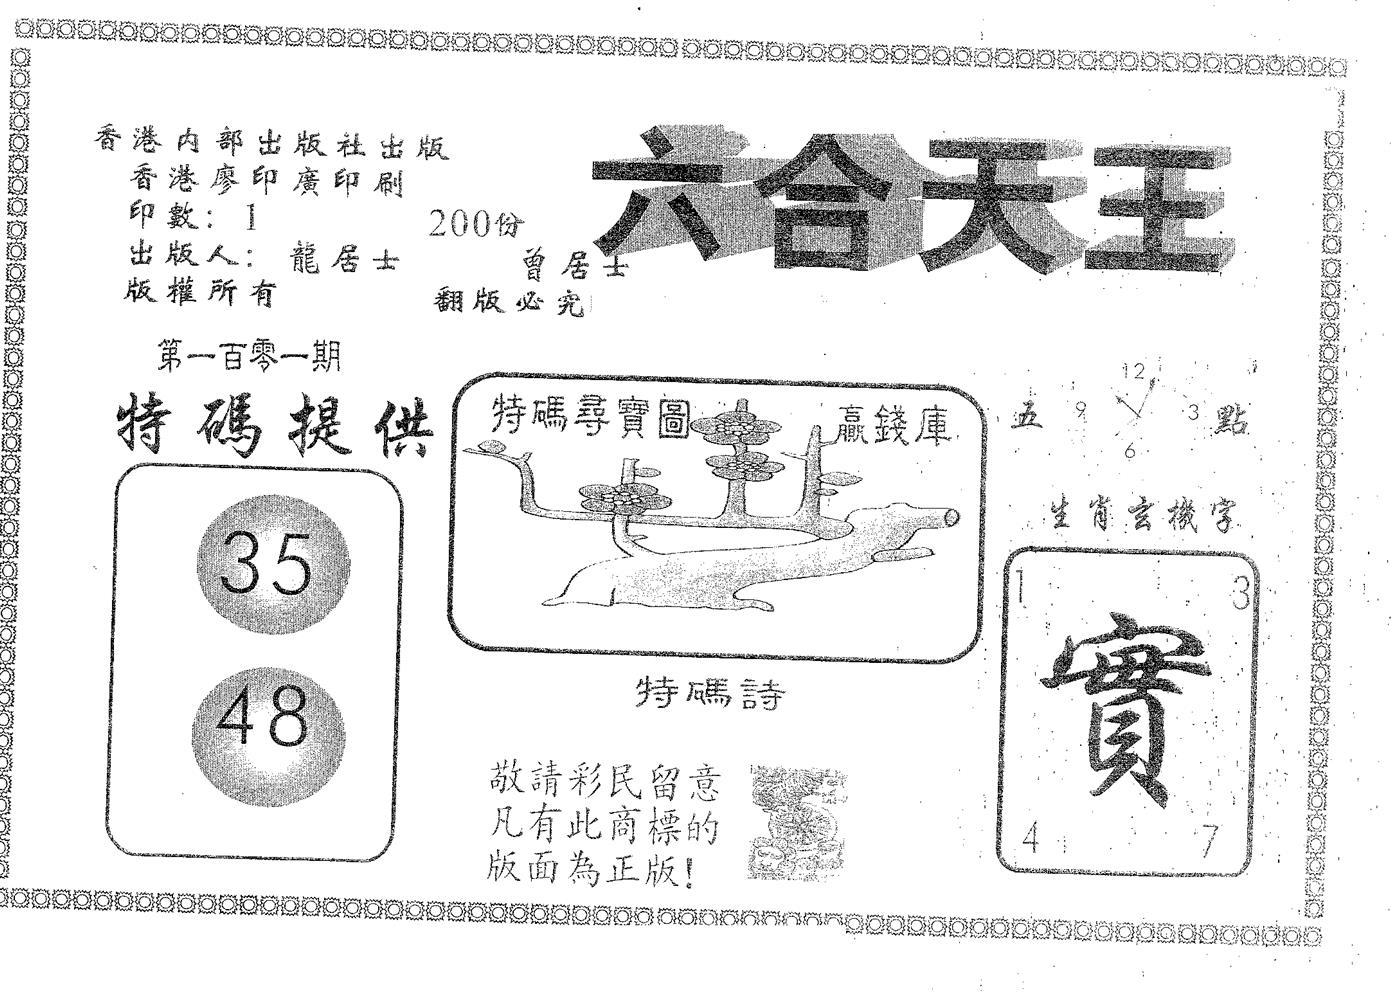 香港内部出版社出版
香港廖印廣印刷
印數：1 200份
出版人：龍居士 曾居士
版權所有 翻版必究
六合天王
第一百零一期
特碼提供
35
48
特碼尋寶圖 贏錢庫
五 點
12
9 3
6
生肖玄機字
1 3
實
4 7
特碼詩
敬請彩民留意
凡有此商標的
版面為正版!